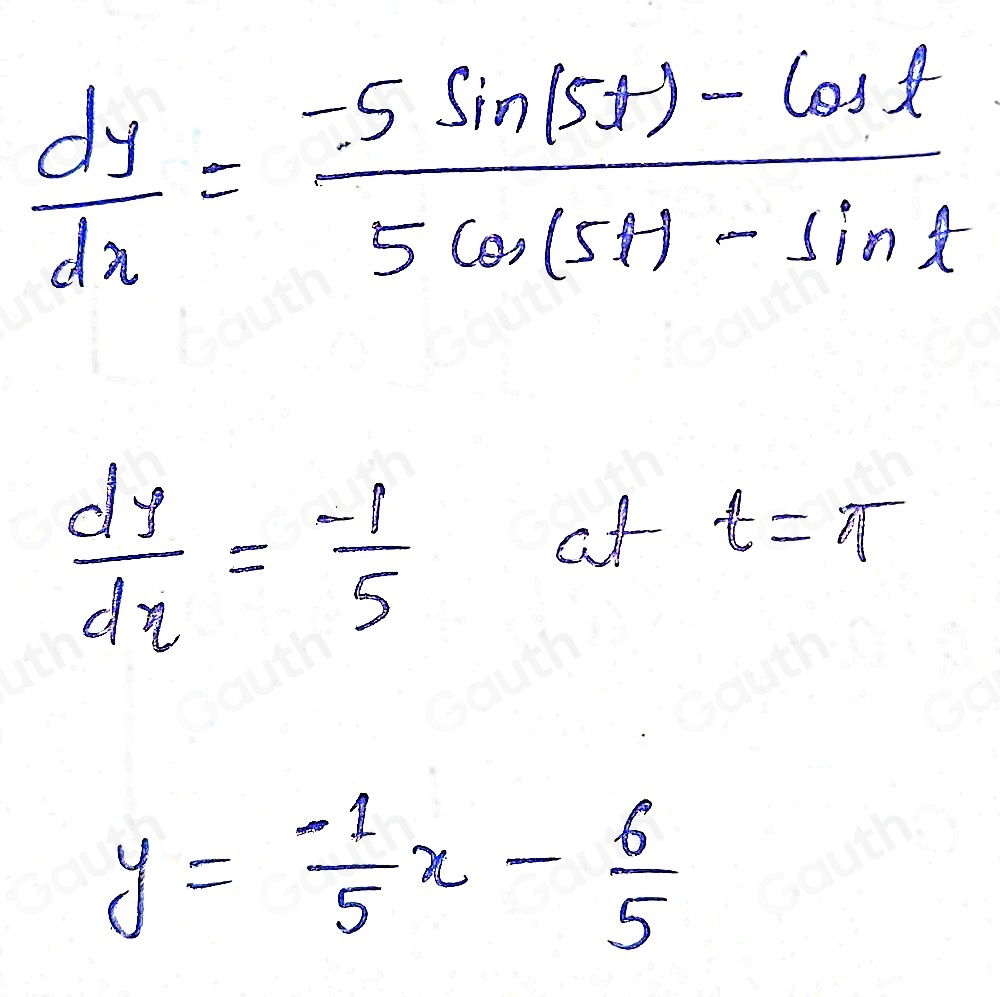 dy/dx = (-5 Sin(5t) - Cos t)/(5 Cos(5t) - Sin t)
dy/dx = -1/5 at t = π
y = -1/5 x - 6/5